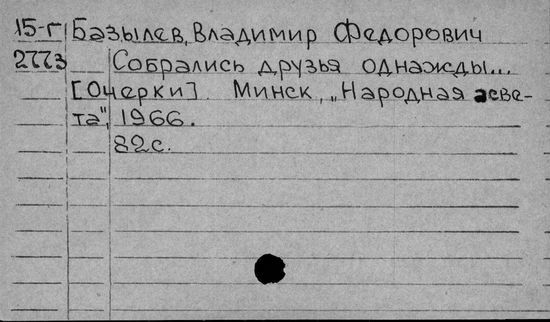 15-г Базылев, Владимир Федорович
2773 Собрались друзья однажды...
[Очерки] Минск, „Народная асве-
та", 1966.
82с.